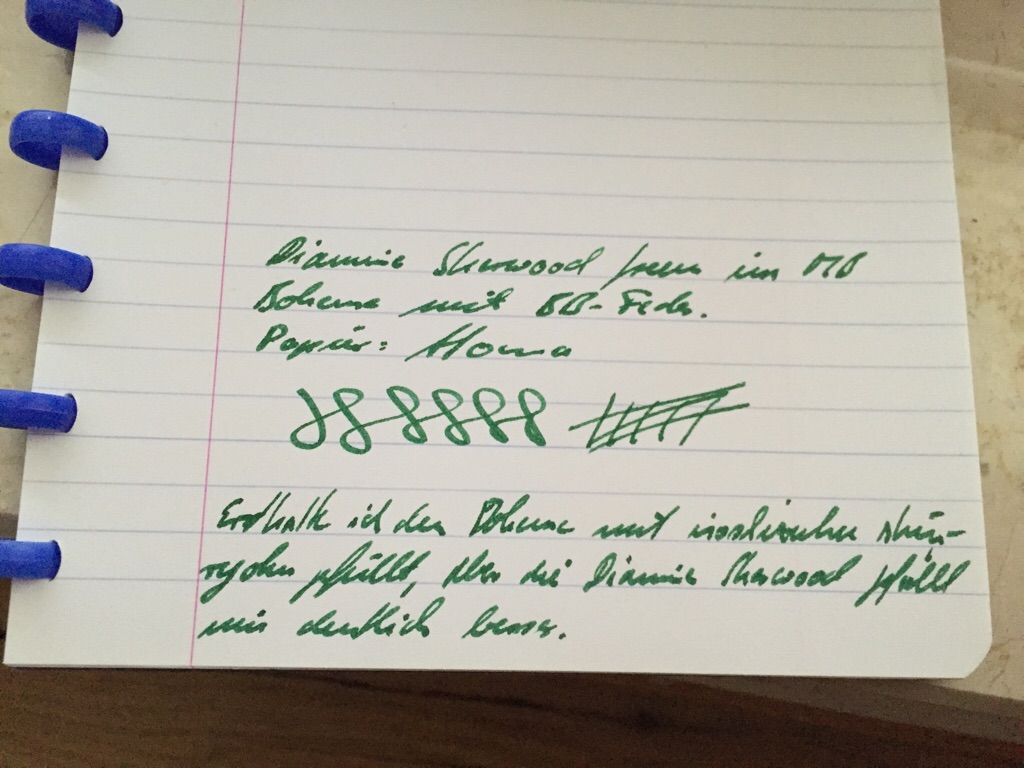 Diamine Sherwood Green im MB
Boheme mit BB-Feder.
Papier: Atoma
ich den Boheme mit
gefüllt, aber die Diamine Sherwood gefällt
mir deutlich besser.